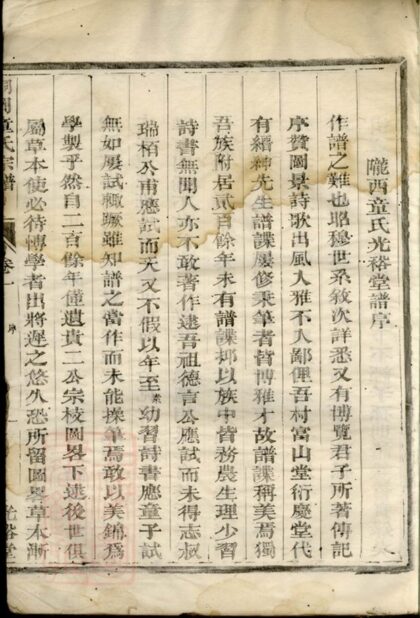 隴西童氏光裕堂譜序
作譜之難也耶穆世系敘次詳悉又有博覽君子所著傳記
序贊圖景詩歌出風入雅不入鄙俚吾村富山堂衍慶堂代
有縉紳先生譜諜屢修秉筆者皆博雅才故譜諜稱美焉獨
吾族附居貳百餘年未有譜諜抑以族中皆務農生理少習
詩書無聞人亦不敢著作逮吾祖德言公應試而未得志叔
瑞栢公甫應試而天又不假以年至素幼習詩書應童子試
無如屢試輙蹶雖知譜之當作而未能操筆焉敢以美錦為
學製乎然自二百餘年僅遺貴二公宗枝圖畧下逮後世俱
屬草本使必待博學者出將遲之悠久恐所留圖畧草本漸
童氏宗譜
卷一
序
光裕堂